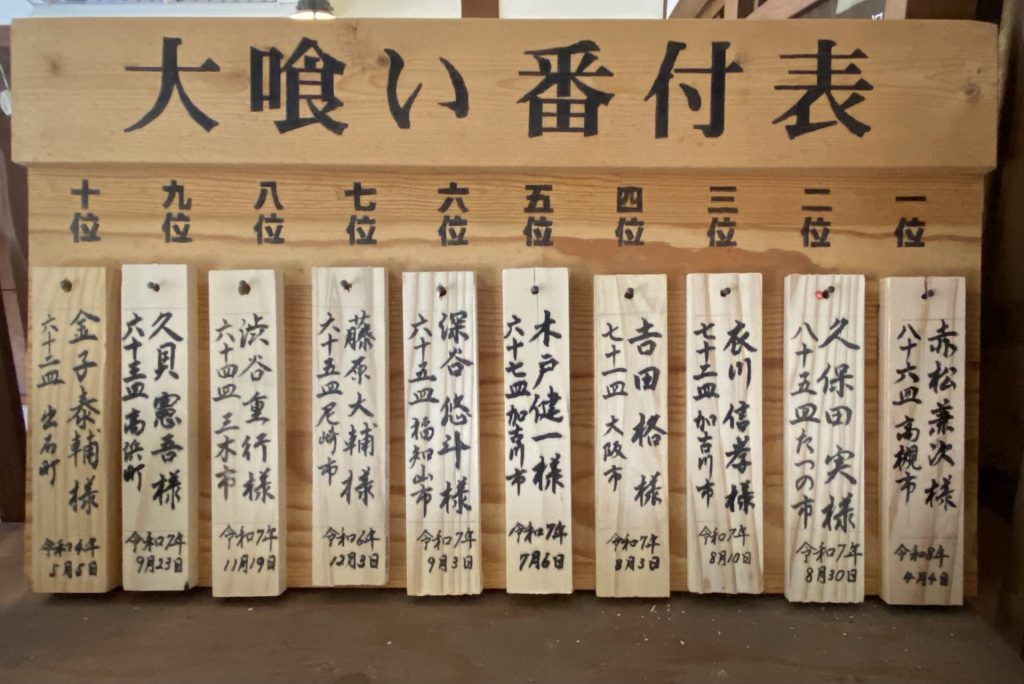 大喰い番付表
一位
赤松兼次様
八十六皿 高槻市
令和8年
4月4日
二位
久保田実様
八十五皿 たつの市
令和7年
8月30日
三位
衣川信孝様
七十二皿 加古川市
令和7年
8月10日
四位
吉田格様
七十一皿 大阪市
令和7年
8月3日
五位
木戸健一様
六十七皿 加古川市
令和7年
7月6日
六位
深谷悠斗様
六十五皿 福知山市
令和7年
9月3日
七位
藤原大輔様
六十五皿 尼崎市
令和6年
12月3日
八位
渋谷重行様
六十四皿 三木市
令和7年
11月19日
九位
久貝憲吾様
六十三皿 高浜町
令和2年
9月23日
十位
金子泰輔様
六十二皿 出石町
令和4年
5月5日